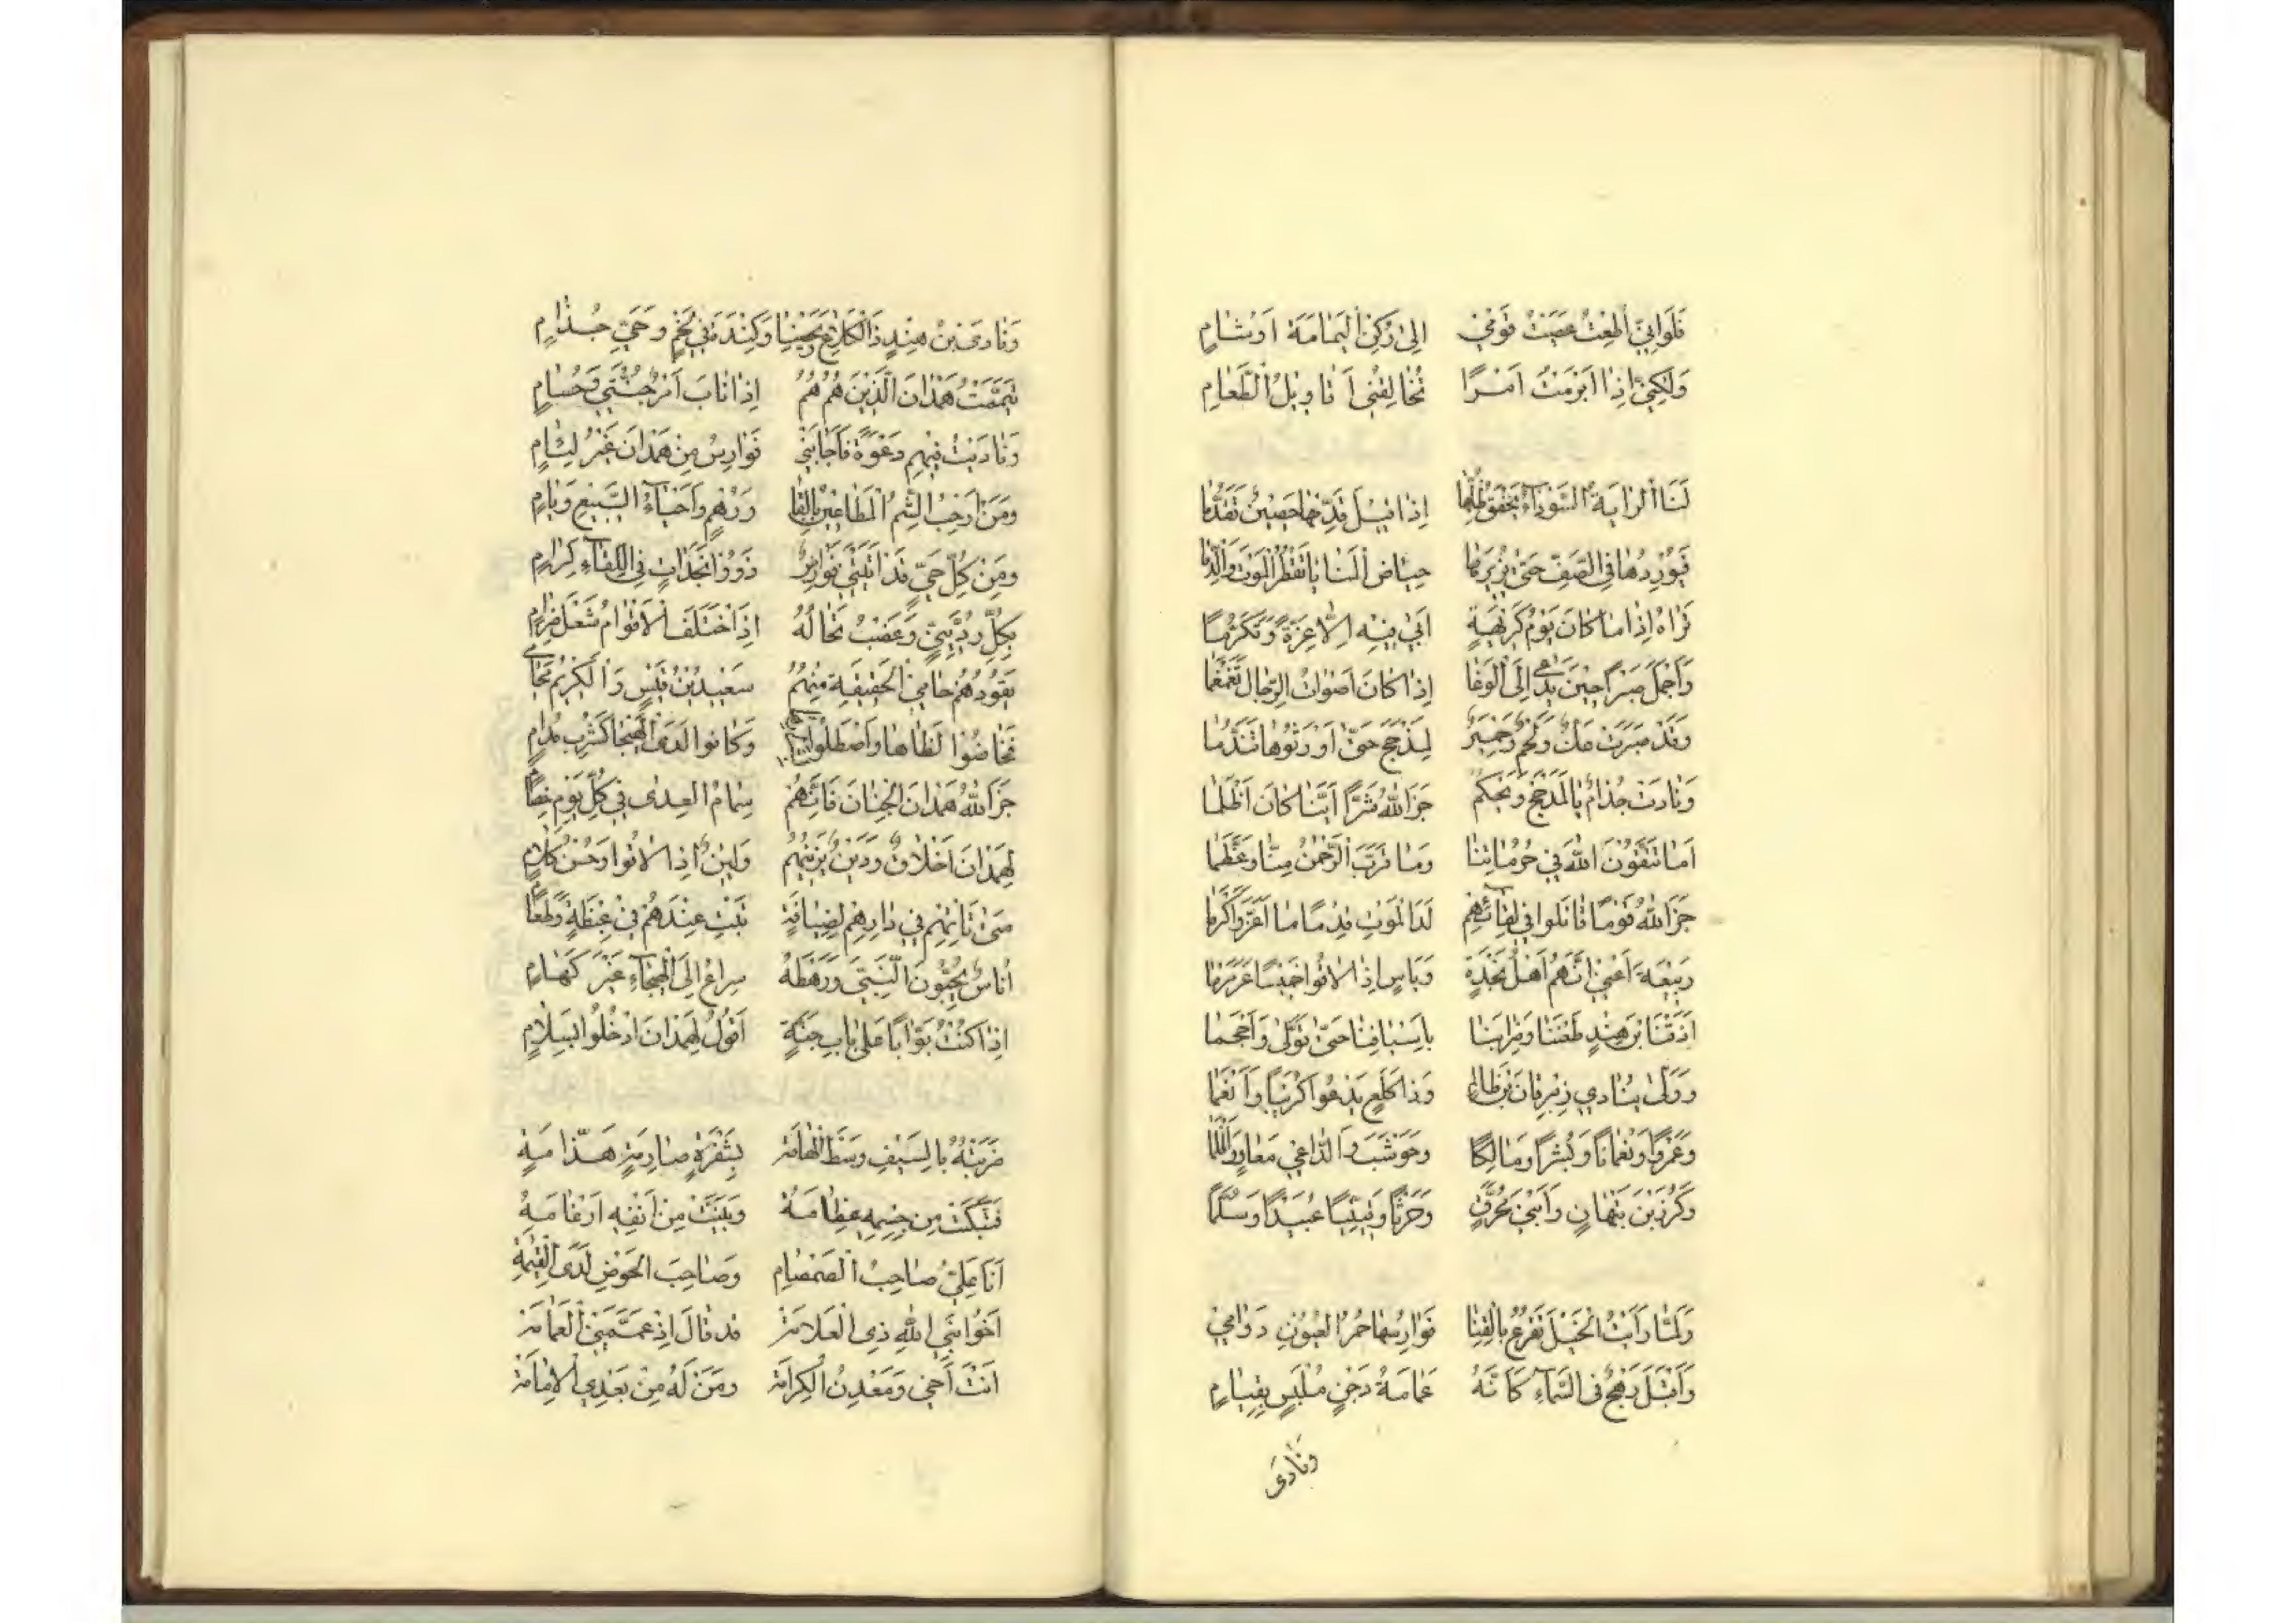 فَلَوْ أَنِّي أُطِعْتُ عَصَبْتُ قَوْمِي إِلىٰ رُكْنِ الْيَمَامَةِ اَوْ شَامِ
وَلٰكِنِّي إِذَا أَبْرَمْتُ اَمْرًا تُخَالِفُنِي أَقَاوِيلُ الطَّغَامِ
لَنَا الرَّايَةُ السَّوْدَاءُ يَخْفِقُ ظِلُّهَا إِذَا قِيلَ قَدِّمْهَا حُصَيْنُ تَقَدَّمَا
فَيُورِدُهَا فِي الصَّفِّ حَتّىٰ يُزِيرَهَا حِيَاضَ الْمَنَايَا تَقْطُرُ الْمَوْتَ وَالدَّمَا
تَرَاهُ إِذَا مَا كَانَ يَوْمُ كَرِيْهَةٍ اَبىٰ فِيْهِ اِلَّا عِزَّةً وَتَكَرُّمًا
وَاَجْمَلَ صَبْرًا حِيْنَ يُدْعىٰ إِلَى الْوَغَا إِذَا كَانَ اَصْوَاتُ الرِّجَالِ تَغَمْغُمَا
وَقَدْ صَبَرَتْ عَكٌّ وَلَخْمٌ وَحِمْيَرٌ لِمَذْحِجٍ حَتّىٰ اَوْرَثُوهَا تَنَدُّمَا
وَنَادَتْ جُذَامٌ يَالَ مَذْحِجٍ وَيْحَكُمْ جَزَا اللّٰهُ شَرًّا اَيَّنَا كَانَ اَظْلَمَا
اَمَا تَتَّقُونَ اللّٰهَ فِي حُرُمَاتِنَا وَمَا قَرَّبَ الرَّحْمٰنُ مِنَّا وَعَظَّمَا
جَزَا اللّٰهُ قَوْمًا قَاتَلُوا فِي لِقَائِهِمْ لَدَا الْمَوْتِ قِدْمًا مَا اَعَزَّ وَاَكْرَمَا
رَبِيْعَةَ اَعْنِي اِنَّهُمْ اَهْلُ نَجْدَةٍ وَبَاسٍ إِذَا لَاقُوا خَمِيْسًا عَرَمْرَمَا
اَذَقْنَا ابْنَ هِنْدٍ طَعْنَنَا وَضِرَابَنَا بِاَسْيَافِنَا حَتّىٰ تَوَلّىٰ وَاَحْجَمَا
وَوَلّىٰ يُنَادِي زِبْرِقَانَ بْنَ ظَالِمٍ وَذَا كَلَعٍ يَدْعُوا كُرَيْبًا وَاَنْعَمَا
وَعَمْرًوا وَنُعْمَانًا وَبُسْرًا وَمَالِكًا وَحَوْشَبَ وَالدَّاعِي مَعَاوِيَ اَظْلَمَا
وَكُرْزَ بْنَ نَبْهَانٍ وَابْنَيْ مُحَرِّقٍ وَحَرْثًا وَقَيْنِيًّا عُبَيْدًا وَسَلَّمَا
وَلَمَّا رَاَيْتُ الْخَيْلَ تُقْرَعُ بِالْقَنَا فَوَارِسُهَا حُمْرُ الْعُيُونِ دَوَامِي
وَاَقْبَلَ رَهْجٌ فِي السَّمَاءِ كَاَنَّهُ غَمَامَةُ دَجْنٍ مُلْبَسٍ بِقِيَامِ
وَنَادىٰ
وَنَادَى ابْنُ هِنْدٍ ذَا الْكَلَاعِ وَيَحْصِبًا وَكِنْدَةَ فِي لَخْمٍ وَحَيِّ جُذَامِ
تَيَمَّمْتُ هَمْدَانَ الَّذِيْنَ هُمُ هُمُ إِذَا نَابَ اَمْرٌ جُنَّتِي وَحُسَامِ
وَنَادَيْتُ فِيْهِمْ دَعْوَةً فَاَجَابَنِي فَوَارِسُ مِنْ هَمْدَانَ غَيْرُ لِئَامِ
وَمِنْ اَرْحَبَ الشُّمُّ الْمَطَاعِيْنُ بِالْقَنَا وَرُهْمٍ وَاَحْيَاءُ السَّبِيْعِ وَيَامِ
وَمِنْ كُلِّ حَيٍّ قَدْ اَتَتْنِي فَوَارِسٌ ذَوُوا نَجَدَاتٍ فِي اللِّقَاءِ كِرَامِ
بِكُلِّ رُدَيْنِيٍّ وَعَضْبٍ تَخَالُهُ إِذَا اخْتَلَفَ الْاَقْوَامُ شُعْلَ ضِرَامِ
يَقُودُهُمْ حَامِي الْحَقِيْقَةِ مِنْهُمُ سَعِيْدُ بْنُ قَيْسٍ وَالْكَرِيْمُ مُحَامِي
فَخَاضُوا لَظَاهَا وَاصْطَلَوْا شَرَارَهَا وَكَانُوا لَدَى الْهَيْجَا كَشُرْبِ مُدَامِ
جَزَا اللّٰهُ هَمْدَانَ الْجِنَانَ فَاِنَّهُمْ سِمَامُ الْعِدىٰ فِي كُلِّ يَوْمِ خِصَامِ
لِهَمْدَانَ اَخْلَاقٌ وَدِيْنٌ يَزِيْنُهُمْ وَلِيْنٌ إِذَا لَاقُوا وَحُسْنُ كَلَامِ
مَتىٰ تَأْتِهِمْ فِي دَارِهِمْ لِضِيَافَةٍ تَبِتْ عِنْدَهُمْ فِي غِبْطَةٍ وَطَعَامِ
اُنَاسٌ يُحِبُّونَ النَّبِيَّ وَرَهْطَهُ سِرَاعٌ إِلَى الْهَيْجَاءِ غَيْرُ كَهَامِ
إِذَا كُنْتُ بَوَّابًا عَلىٰ بَابِ جَنَّةٍ اَقُولُ لِهَمْدَانَ ادْخُلُوا بِسَلَامِ
ضَرَبْتُهُ بِالسَّيْفِ وَسْطَ الْهَامَةْ بِشَفْرَةٍ صَارِمَةٍ هَدَّامَةٍ
فَبَتَّكَتْ مِنْ جِسْمِهِ عِظَامَهُ وَبَيَّنَتْ مِنْ اَنْفِهِ اَرْغَامَهُ
اَنَا عَلِيٌّ صَاحِبُ الصَّمْصَامِ وَصَاحِبُ الْحَوْضِ لَدَى الْقِيٰمَةِ
اَخُو نَبِيِّ اللّٰهِ ذِي الْعَلَامَةْ قَدْ قَالَ إِذْ عَمَّمَنِي الْعَمَامَةْ
اَنْتَ اَخِي وَمَعْدِنُ الْكِرَامَةْ وَمَنْ لَهُ مِنْ بَعْدِي الْاِمَامَةْ